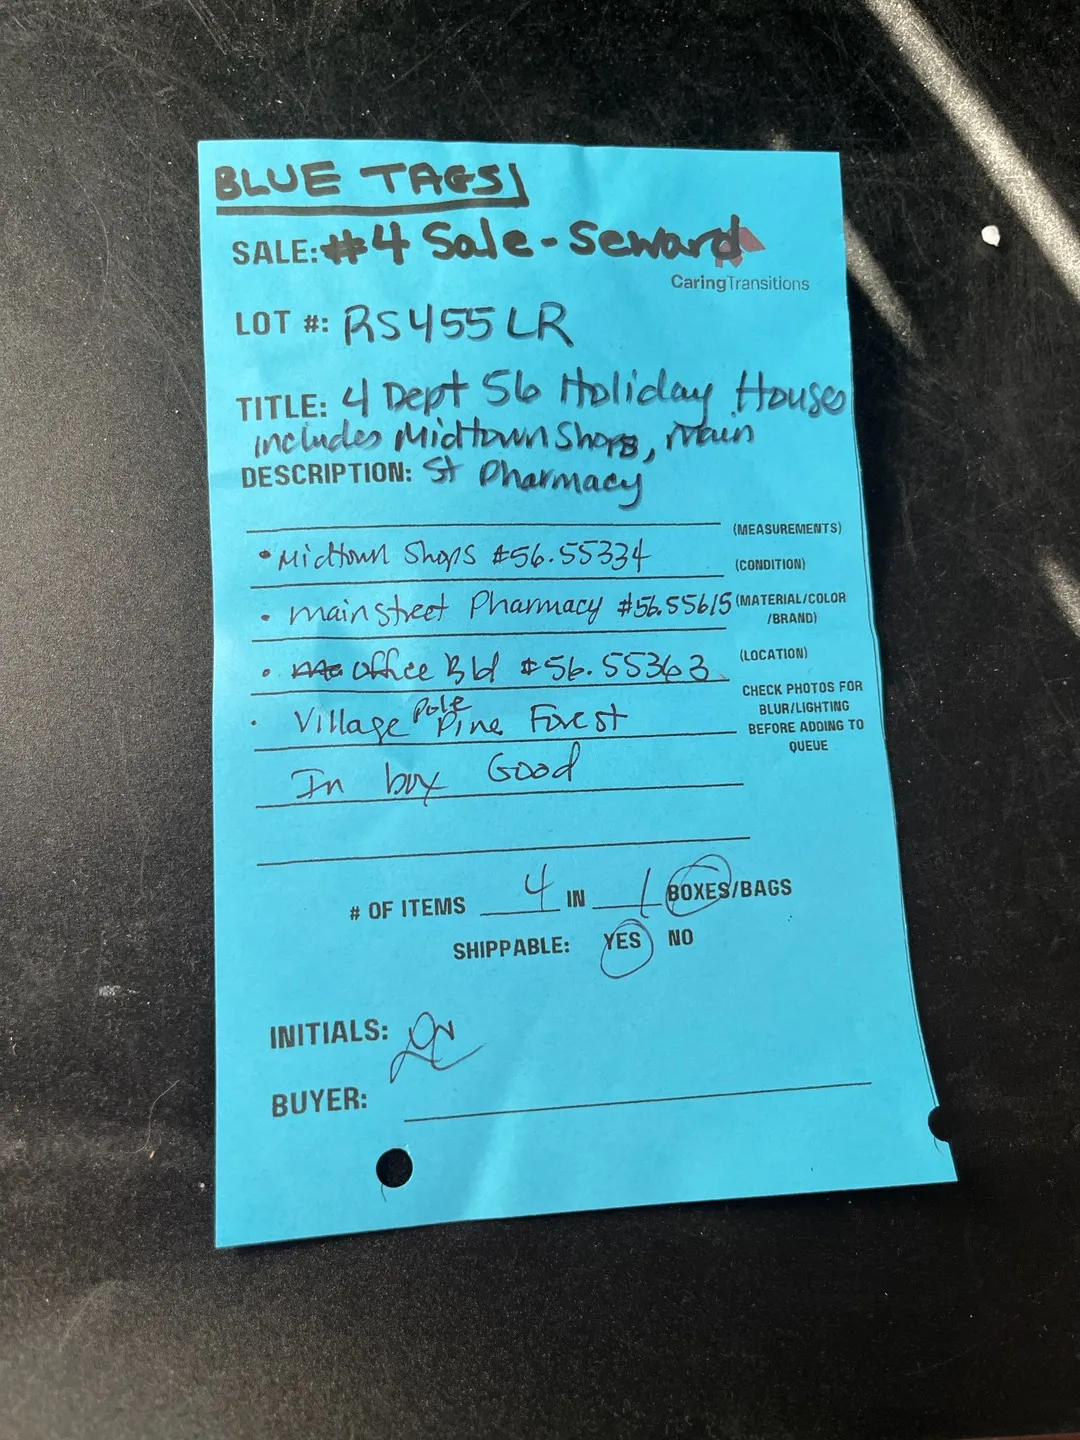 BLUE TAGS
SALE: #4 Sale - Seward
CaringTransitions
LOT #: RS455LR
TITLE: 4 Dept 56 Holiday Houses
includes Midtown Shops, Main
DESCRIPTION: St Pharmacy
(MEASUREMENTS)
• Midtown Shops #56.55334
(CONDITION)
• Mainstreet Pharmacy #56.55615
(MATERIAL/COLOR
/BRAND)
• Office Bld #56.55363
(LOCATION)
• Village Pole Pine Forest
CHECK PHOTOS FOR
BLUR/LIGHTING
BEFORE ADDING TO
QUEUE
In box Good
# OF ITEMS 4 IN 1 BOXES/BAGS
SHIPPABLE: YES NO
INITIALS:
BUYER: